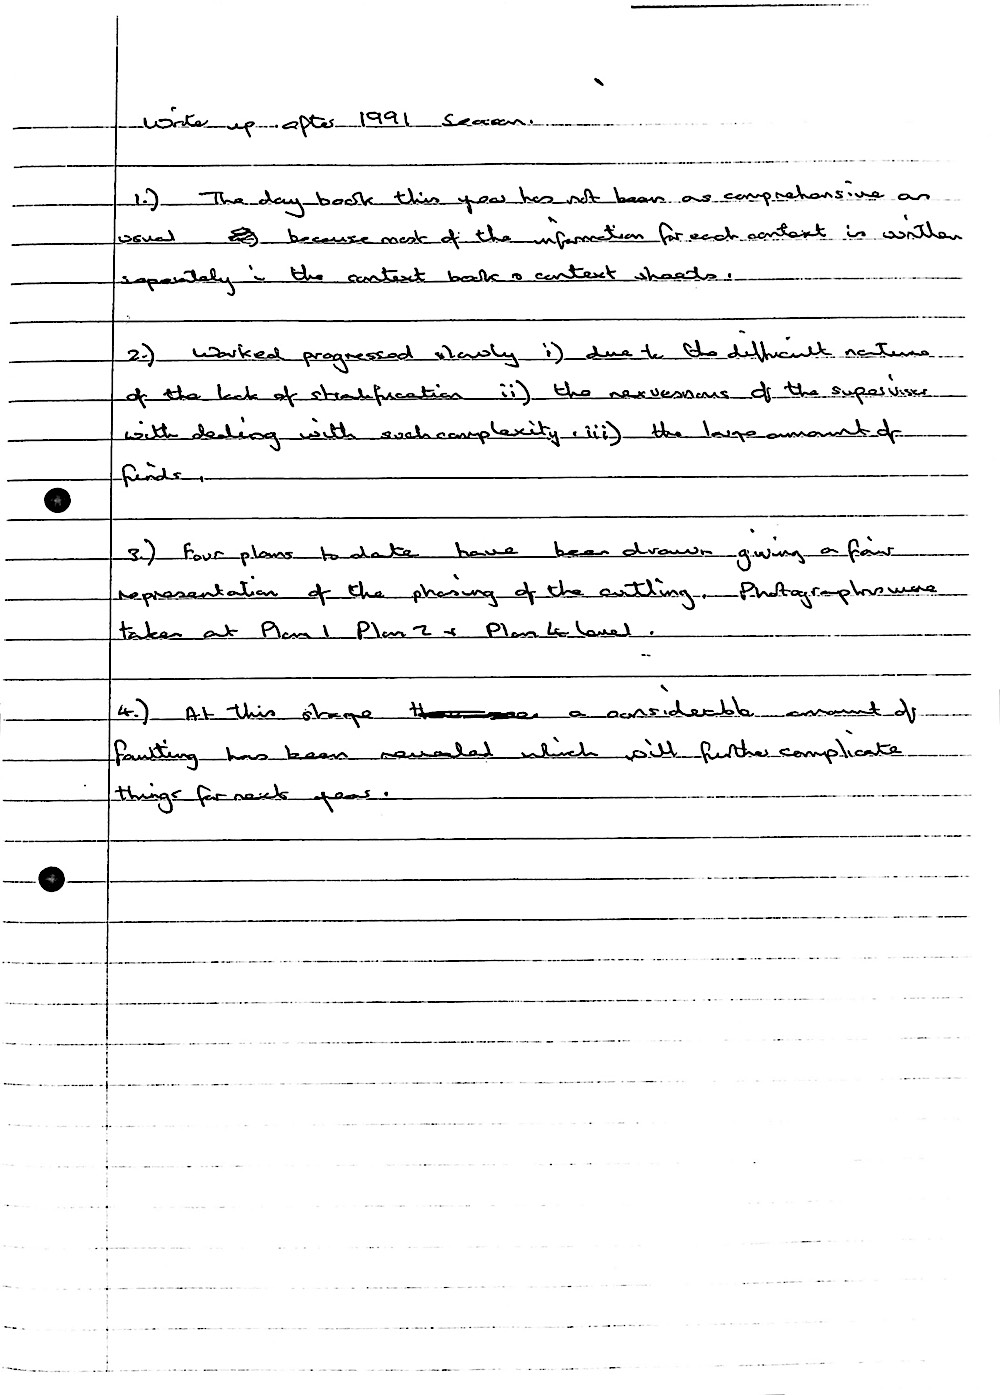 Write up after 1991 season.
1.) The day book this year has not been as comprehensive as
usual because most of the information for each context is written
separately in the context book & context sheets.
2.) Worked progressed slowly i) due to the difficult nature
of the lack of stratification ii) the nervessnous of the supervisor
with dealing with such complexity. iii) the large amount of
finds.
3.) Four plans to date have been drawn giving a fair
representation of the phasing of the cutting. Photographs were
taken at Plan 1 Plan 2 & Plan 4 level.
4.) At this stage a considerable amount of
faulting has been revealed which will further complicate
things for next year.